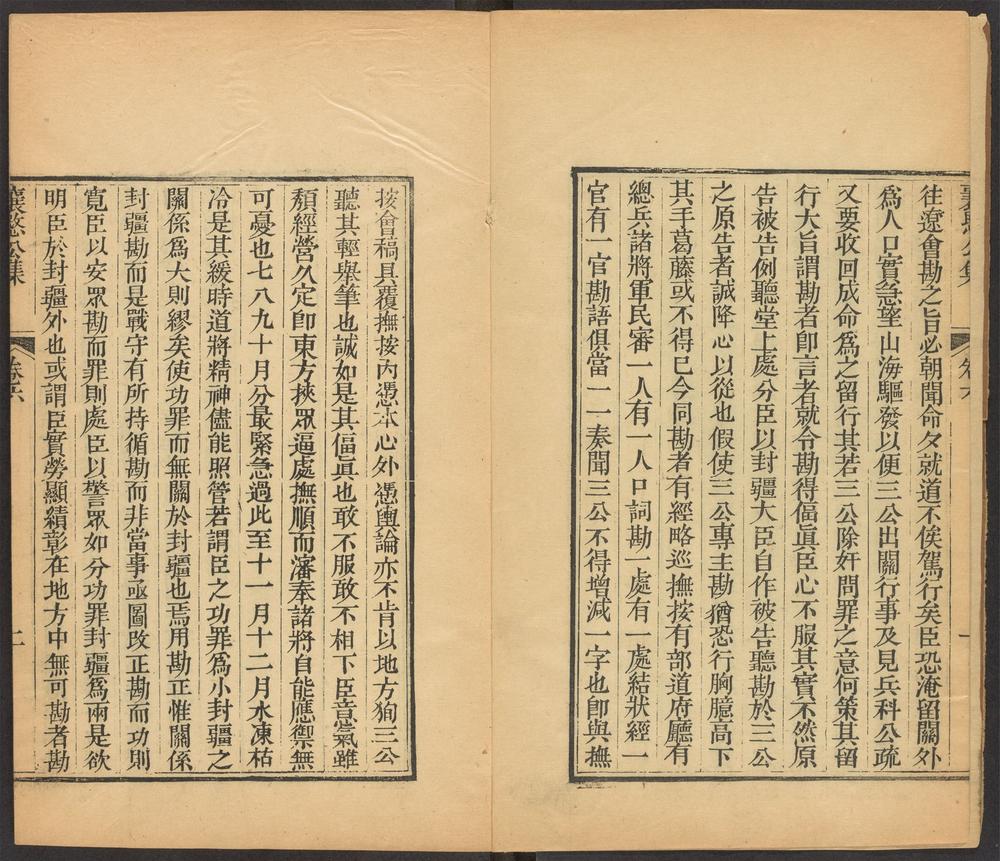 襄愍公集
卷六
往遼會勘之旨必朝聞命夕就道不俟駕行矣臣恐淹留關外
爲人口實急望山海驅發以便三公出關行事及見兵科公疏
又要收回成命爲之留行其若三公除奸問罪之意何策其留
行大旨謂勘者卽言者就令勘得偪眞臣心不服其實不然原
告被告例聽堂上處分臣以封疆大臣自作被告聽勘於三公
之原告者誠降心以從也假使三公專主勘猶恐行胸臆高下
其手葛藤或不得已今同勘者有經略巡撫按有部道府廳有
總兵諸將軍民審一人有一人口詞勘一處有一處結狀經一
官有一官勘語俱當一一奏聞三公不得增減一字也卽與撫
按會稿具覆撫按內憑本心外憑輿論亦不肯以地方狥三公
聽其輕舉筆也誠如是其偪眞也敢不服敢不相下臣意氣雖
頹經營久定卽東方挾眾逼處撫順而瀋奉諸將自能應禦無
可憂也七八九十月分最緊急過此至十一月十二月水凍枯
冷是其緩時道將精神儘能照管若謂臣之功罪爲小封疆之
關係爲大則繆矣使功罪而無關於封疆也焉用勘正惟關係
封疆勘而是戰守有所持循勘而非當事亟圖改正勘而功則
寬臣以安眾勘而罪則處臣以警眾如分功罪封疆爲兩是欲
明臣於封疆外也或謂臣實勞顯績彰在地方中無可勘者勘
襄愍公集
卷六